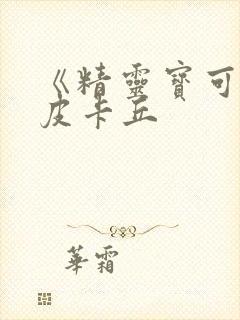 《精靈寶可
皮卡丘
華霜